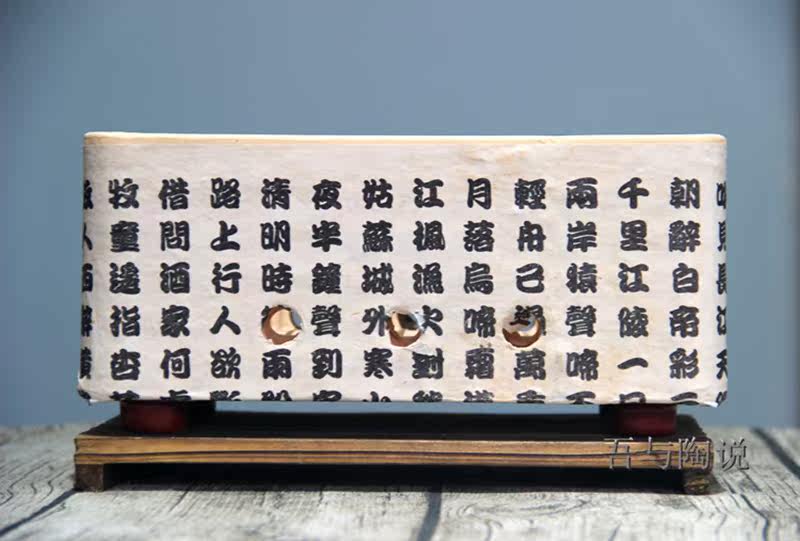 見長江天
朝辭白帝彩
千里江陵一
兩岸猿聲啼
輕舟己過萬
月落烏啼霜
江楓漁火對
姑蘇城外寒
夜半鐘聲到
清明時雨
路上行人欲
借問酒家何
牧童遙指杏
吾与陶说